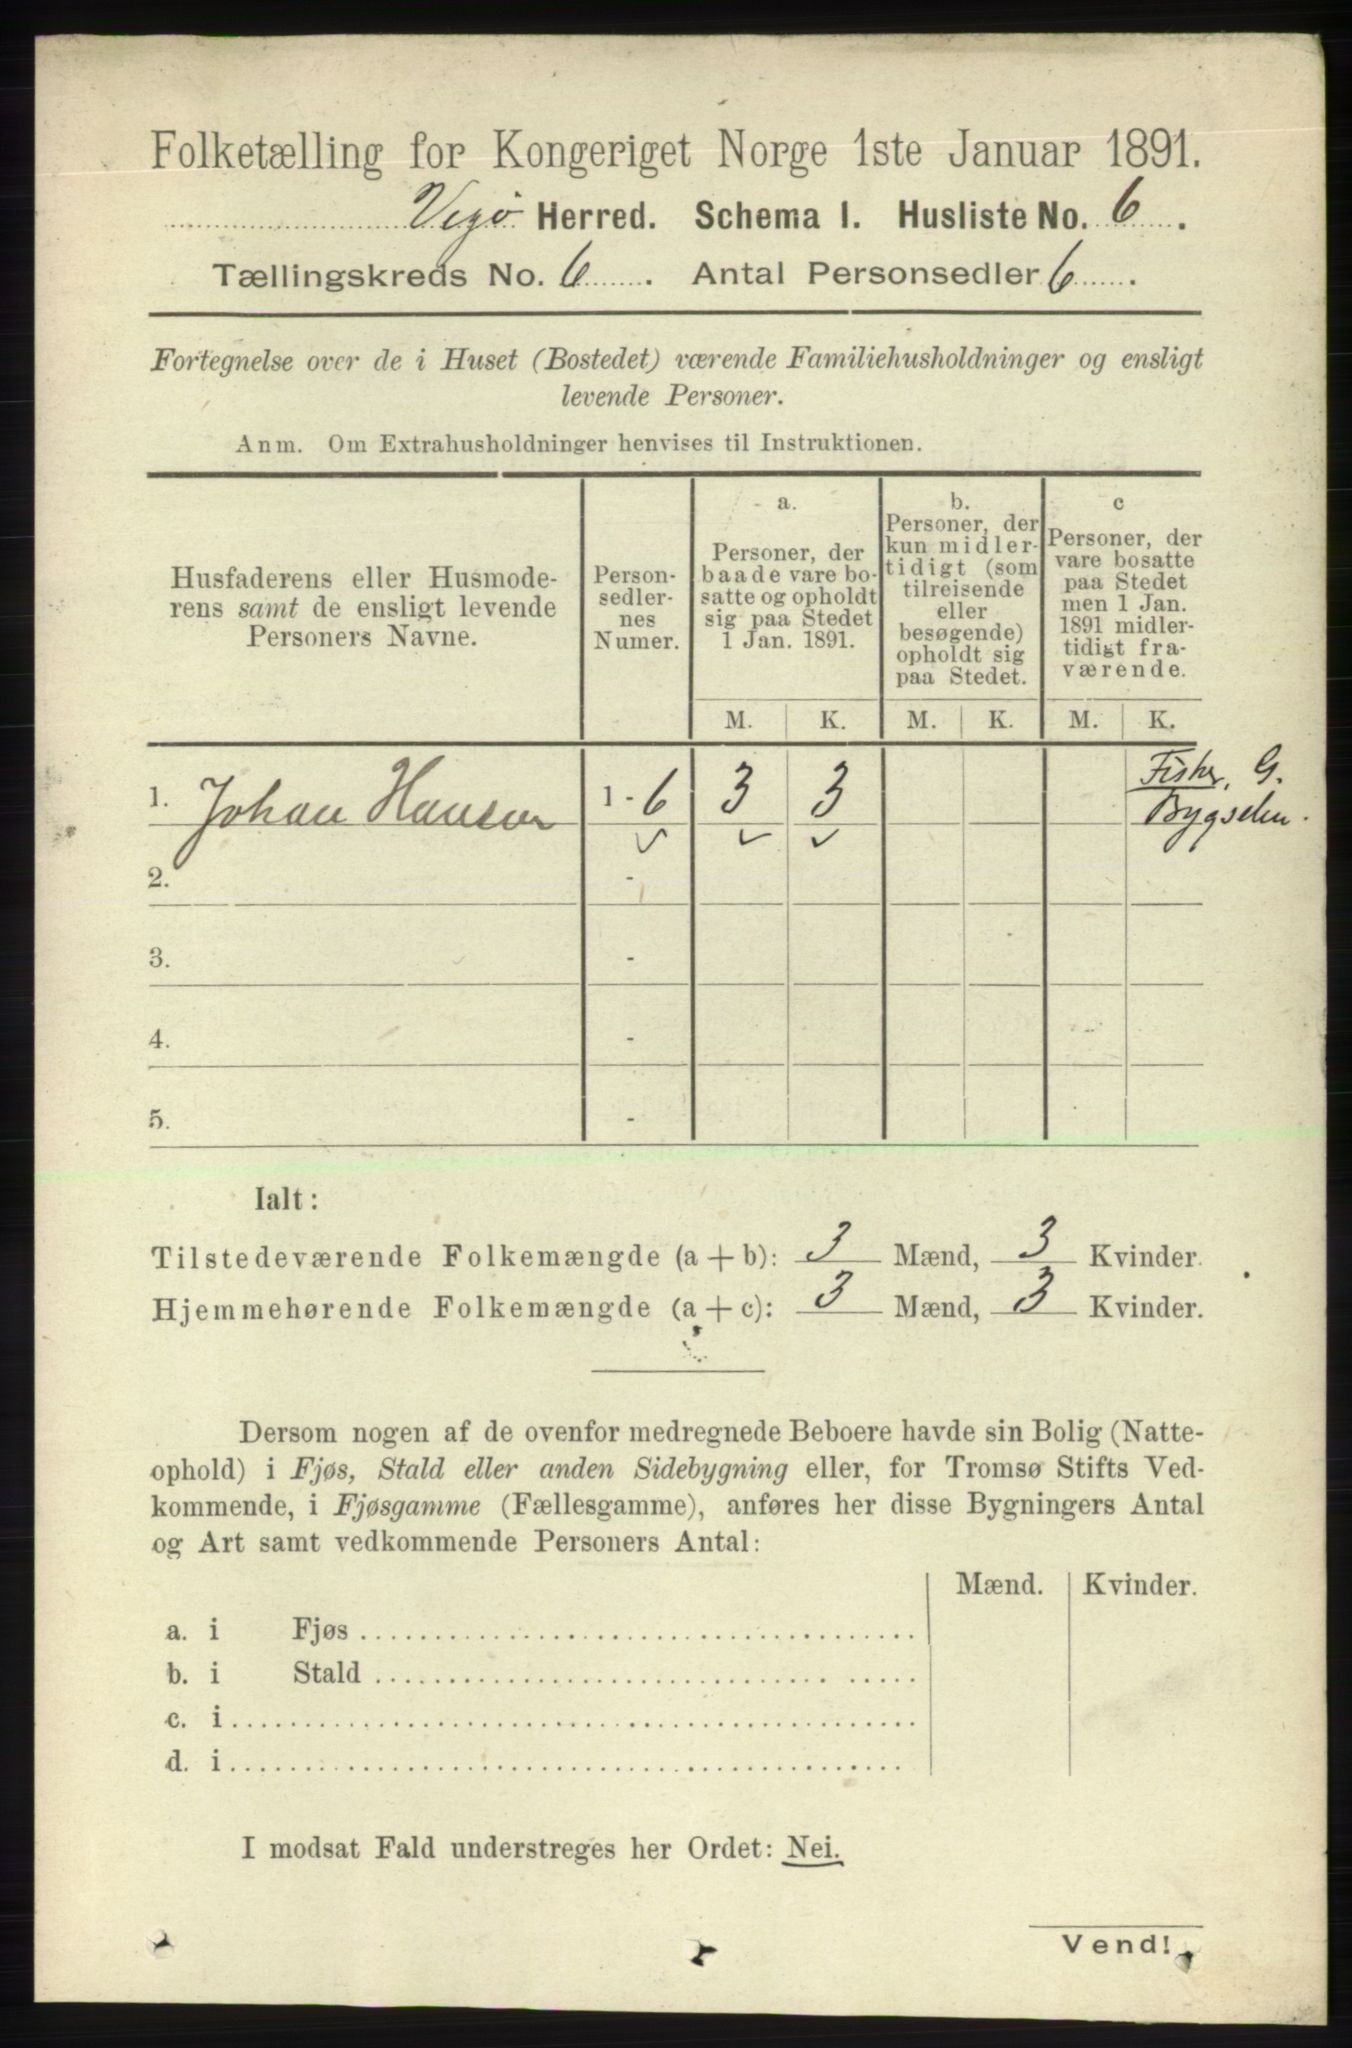 Folketælling for Kongeriget Norge 1ste Januar 1891.
Vegø Herred. Schema I. Husliste No. 6.
Tællingskreds No. 6. Antal Personsedler 6.
Fortegnelse over de i Huset (Bostedet) værende Familiehusholdninger og ensligt
levende Personer.
Anm. Om Extrahusholdninger henvises til Instruktionen.
Husfaderens eller Husmode-
rens samt de ensligt levende
Personers Navne.
Person-
sedler-
nes
Numer.
a.
Personer, der
baade vare bo-
satte og opholdt
sig paa Stedet
1 Jan. 1891.
b.
Personer, der
kun midler-
tidigt (som
tilreisende
eller
besøgende)
opholdt sig
paa Stedet.
c
Personer, der
vare bosatte
paa Stedet
men 1 Jan.
1891 midler-
tidigt fra-
værende.
M. K. M. K. M. K.
1. Johan Hansen 1 - 6 3 3 Fisker, G.
Bygselm.
2. -
3. -
4. -
5. -
Ialt:
Tilstedeværende Folkemængde (a + b): 3 Mænd, 3 Kvinder.
Hjemmehørende Folkemængde (a + c): 3 Mænd, 3 Kvinder.
Dersom nogen af de ovenfor medregnede Beboere havde sin Bolig (Natte-
ophold) i Fjøs, Stald eller anden Sidebygning eller, for Tromsø Stifts Ved-
kommende, i Fjøsgamme (Fællesgamme), anføres her disse Bygningers Antal
og Art samt vedkommende Personers Antal:
Mænd. Kvinder.
a. i Fjøs
b. i Stald
c. i
d. i
I modsat Fald understreges her Ordet: Nei.
Vend!